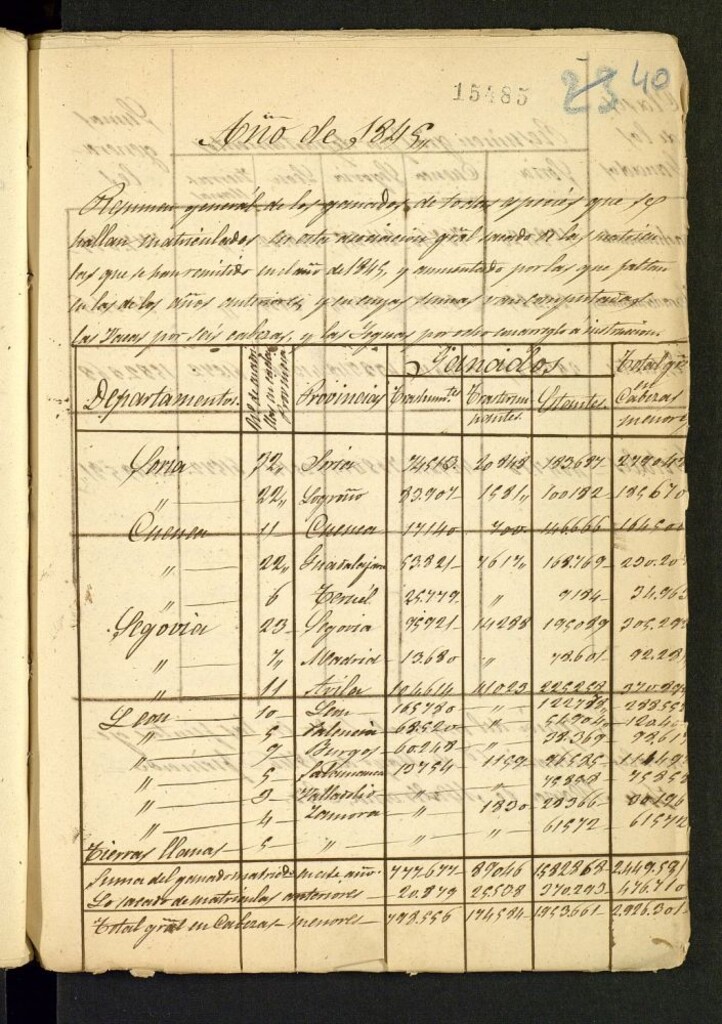 15485
23 40
Año de 1845,,
Resumen general de los ganados de todas especies que se
hallan matriculados en esta asociacion gral sacado de las matricu
las que se han remitido en el año de 1845, y aumentado por las que faltan
en los de los años anteriores, y en cuyas sumas van computadas
las Vacas por seis cabezas, y las Yeguas por
Ganados. Total gral
Departamentos. Provincias Trashumtes Trasterminantes. Estantes. en Cabezas menores
Soria 72,, Soria 74513 20848 183687
,, 22,, Logroño 83.907 1581,, 100182 185670
Cuenca 11 Cuenca 17140 700 146666 164506
,, 22,, Guadalajara 53.821 7617,, 168.769 230.20
,, 6 Teruél 25.779 ,, 9184 34.963
Segovia 23 Segovia 95921 14288 195089 305.298
,, 7,, Madrid 13.680 ,, 78.601 92.281
,, 11 Avila 104614 41023 225258 370.89
Leon 10 Leon 165780 ,, 122788 28855
,, 5 Palencia 68.520 ,,
,, 9 Burgos 60.248 ,, 38.369 98.617
,, 5 Salamanca 13754 1159
,, 3 Valladolid ,, ,, 75858 75858
,, 4 Zamora ,, 1830 28366 30196
Tierras llanas 5 ,, ,, ,, 61572 61572
Suma del ganado matricdo en este año. 777.677 89046 1582868 2.449.591
Lo sacado de matriculas anteriores 20.879 25538 370.293 476.710
Total gral en Cabezas menores 798.556 174584 1953.661 2.926.301